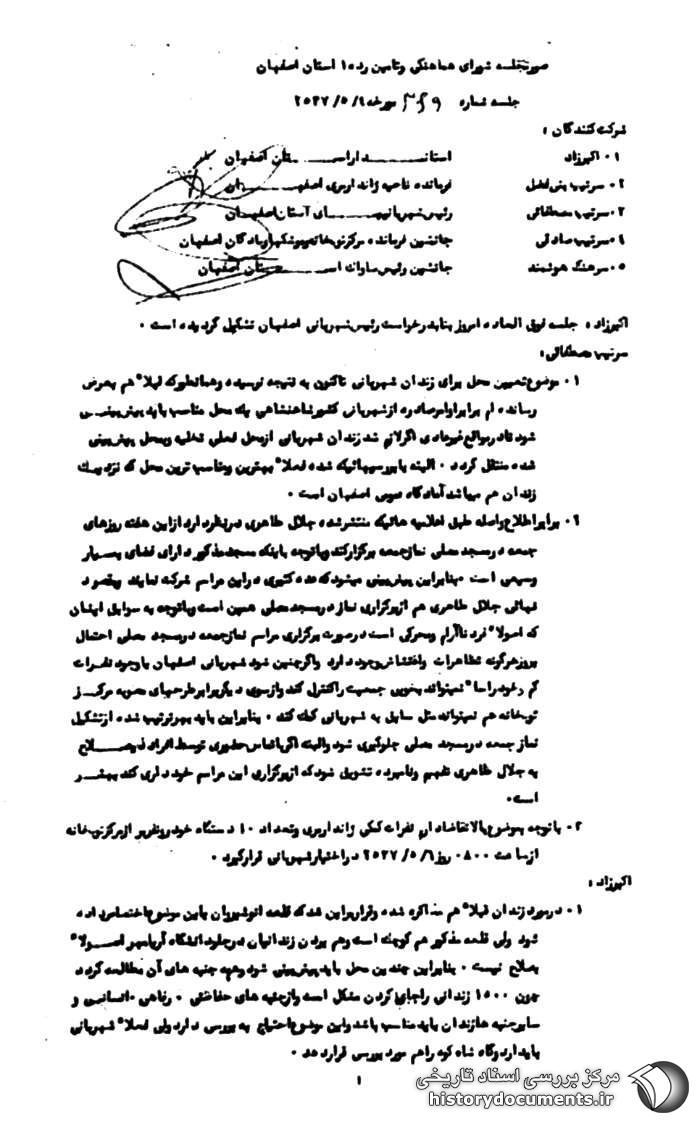 صورتجلسه شورای هماهنگی و تامین رده ۱ استان اصفهان
جلسه شماره ۳۶۹ مورخه ۲۵۳۷/۵/۹
شرکت کنندگان :
۱۰ اکبرزاد استاندار استان اصفهان
۲۰ سرتیپ فرمانده ناحیه ژاندارمری اصفهان
۳۰ سرتیپ مصطفائی رئیس شهربانیهای استان اصفهان
۴۰ سرتیپ صادقی جانشین فرمانده مرکز توپخانه و موشکها و پادگان اصفهان
۵۰ سرهنگ هوشمند جانشین رئیس ساواک استان اصفهان
اکبرزاد : جلسه فوق العاده امروز بنا بدرخواست رئیس شهربانی اصفهان تشکیل گردیده است ۰
سرتیپ مصطفائی:
۱۰ موضوع تعیین محل برای زندان شهربانی تاکنون به نتیجه نرسیده و همانطور که قبلا" هم بعرض
رسانده ام برابر اوامر صادره از شهربانی کشور شاهنشاهی یک محل مناسب باید پیش بینی
شود تا در مواقع غیر عادی اگر لازم شد زندان شهربانی از محل فعلی تخلیه و بمحل پیش بینی
شده منتقل گردد ۰ البته با بررسیهائیکه شده فعلا" بهترین و مناسب ترین محل که نزدیک
زندان هم میباشد آمادگاه عمومی اصفهان است ۰
۲۰ برابر اطلاع واصله طبق اعلامیه هائیکه منتشر شده جلال طاهری در نظر دارد از این هفته روزهای
جمعه در مسجد مصلی نماز جمعه برگزار کند و با توجه باینکه مسجد مذکور دارای فضای بسیار
وسیعی است بنابراین پیش بینی میشود که عده کثیری در این مراسم شرکت نمایند و مقصود
نهائی جلال طاهری هم از برگزاری نماز در مسجد مصلی همین است و با توجه به سوابق ایشان
که اصولا" فرد ناآرام و محرکی است در صورت برگزاری مراسم نماز جمعه در مسجد مصلی احتمال
بروز هر گونه تظاهرات و اغتشاش وجود دارد و اگر چنین شود شهربانی اصفهان با وجود نفرات
کم خود راسا" نمیتواند بخوبی جمعیت را کنترل کند و از سوی دیگر برابر طرحهای مصوبه مرکز
توپخانه هم نمیتواند مثل سابق به شهربانی کمک کند ۰ بنابراین باید بهر ترتیب شده از تشکیل
نماز جمعه در مسجد مصلی جلوگیری شود و البته اگر با تماس حضوری توسط افراد ذیصلاح
به جلال طاهری تفهیم و نامبرده تشویق شود که از برگزاری این مراسم خودداری کند بهتر
است ۰
۳۰ با توجه بموضوع بالا تقاضا دارم نفرات کمکی ژاندارمری و تعداد ۱۰ دستگاه خودرو نفربر از مرکز توپخانه
از ساعت ۰۸۰۰ روز ۲۵۳۷/۵/۶ در اختیار شهربانی قرار گیرد ۰
اکبرزاد :
۱۰ در مورد زندان قبلا" هم مذاکره شده و قرار بر این شد که قلعه انوشیروان باین موضوع اختصاص داده
شود ولی قلعه مذکور هم کوچک است و هم بردن زندانیان در جلو دانشگاه آریامهر اصولا"
بصلاح نیست ۰ بنابراین چندین محل باید پیش بینی شود و همه جنبه های آن مطالعه گردد
چون ۱۵۰۰ زندانی را جای کردن مشکل است و از جنبه های حفاظتی ۰ رفاهی ۰ انسانی و
سایر جنبه ها زندان باید مناسب باشد و این موضوع احتیاج به بررسی دارد ولی فعلا" شهربانی
باید اردوگاه شاه کوه را هم مورد بررسی قرار دهد ۰
۱
مرکز بررسی اسناد تاریخی
historydocuments.ir